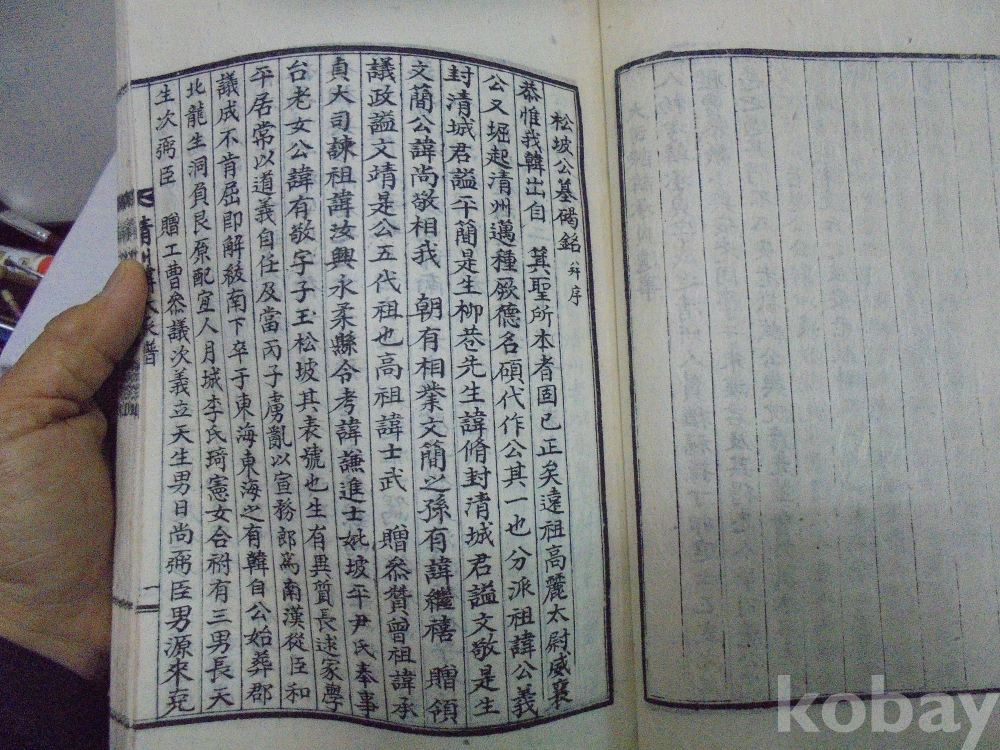 松坡公墓碣銘 幷序
恭惟我韓出自 箕聖所本者固已正矣遠祖高麗太尉威襄
公又堀起淸州邁種厥德名碩代作公其一也分派祖諱公義
封清城君謚平簡是生柳巷先生諱脩封清城君謚文敬是生
文簡公諱尚敬相我 朝有相業文簡之孫有諱繼禧 贈領
議政謚文靖是公五代祖也高祖諱士武 贈叅贊曾祖諱承
貞大司諫祖諱汝興永柔縣令考諱謙進士妣坡平尹氏奉事
台老女公諱有敬字子玉松坡其表號也生有異質長逑家學
平居常以道義自任及當丙子虜亂以宣務郎爲南漢從臣和
議成不肯屈即解綾南下卒于東海東海之有韓自公始葬郡
北龍生洞負艮原配宜人月城李氏琦憲女合祔有三男長天
生次弼臣 贈工曹叅議次義立天生男日尚弼臣男源來克
淸州韓氏派譜
一
kobay